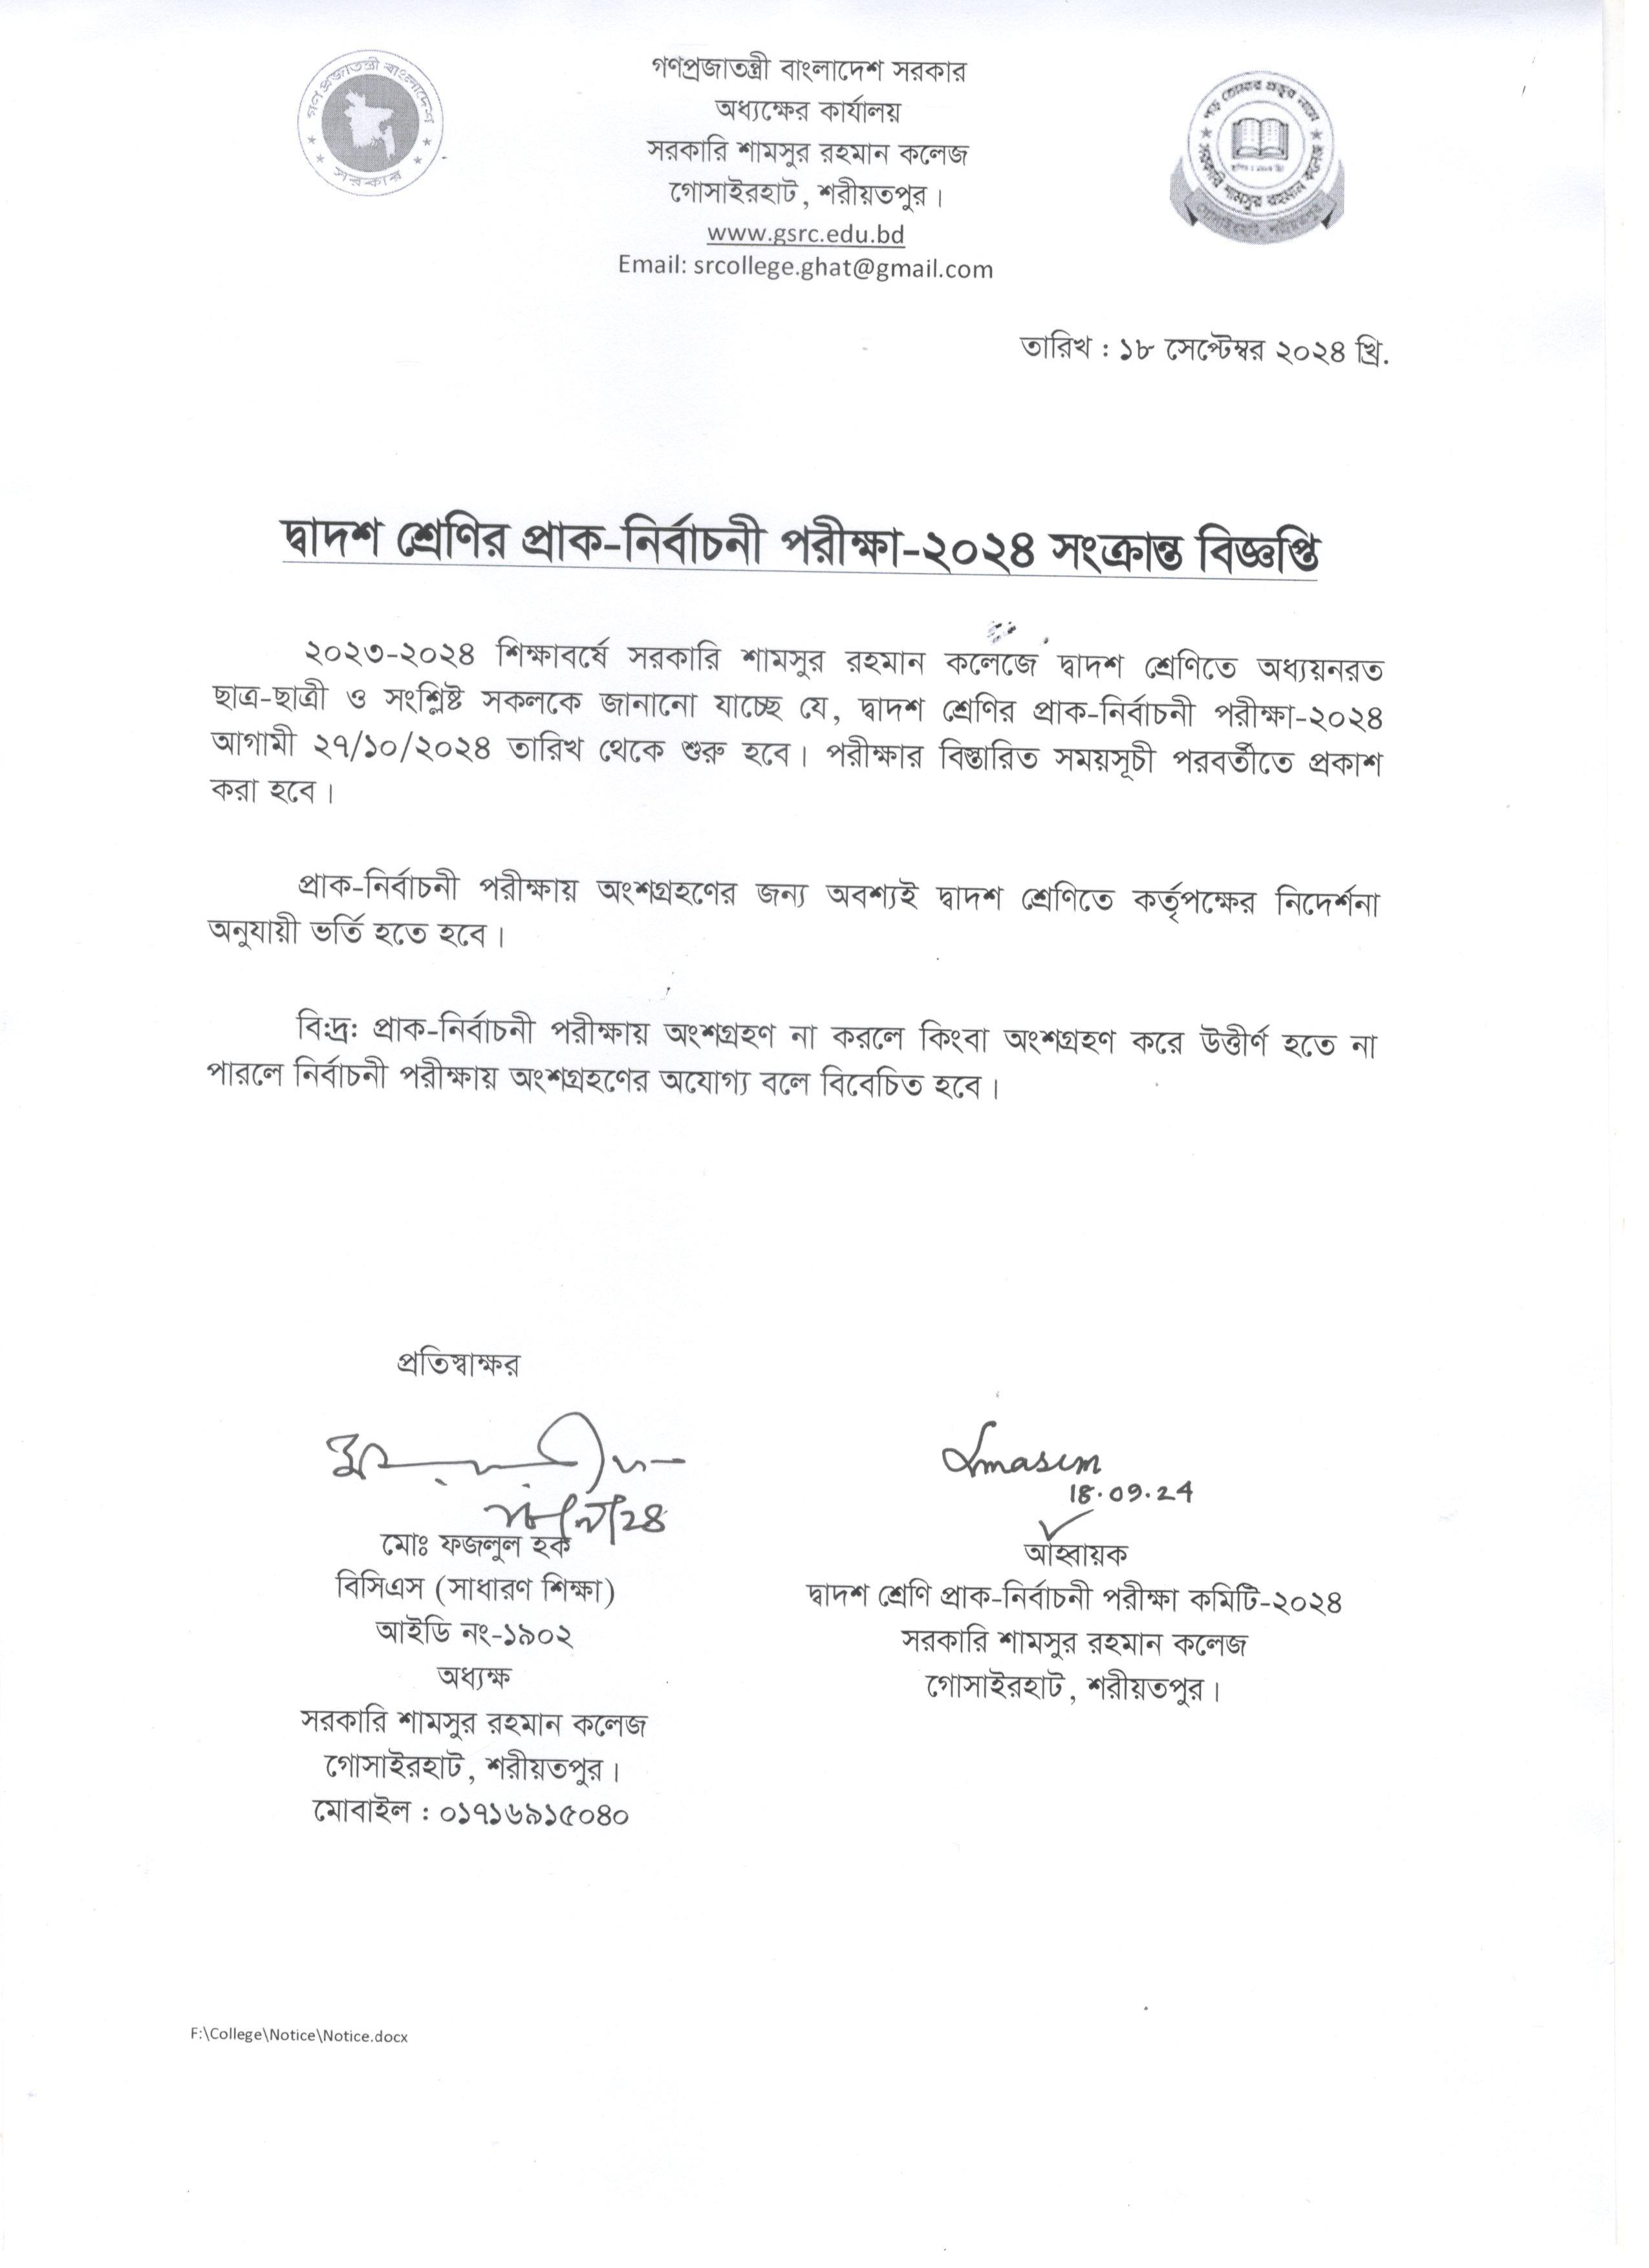 গণপ্রজাতন্ত্রী বাংলাদেশ
সরকার
গণপ্রজাতন্ত্রী বাংলাদেশ সরকার
অধ্যক্ষের কার্যালয়
সরকারি শামসুর রহমান কলেজ
গোসাইরহাট, শরীয়তপুর।
www.gsrc.edu.bd
Email: srcollege.ghat@gmail.com
পড় তোমার প্রভুর নামে
সরকারি শামসুর রহমান কলেজ
তারিখ : ১৮ সেপ্টেম্বর ২০২৪ খ্রি.
দ্বাদশ শ্রেণির প্রাক-নির্বাচনী পরীক্ষা-২০২৪ সংক্রান্ত বিজ্ঞপ্তি
২০২৩-২০২৪ শিক্ষাবর্ষে সরকারি শামসুর রহমান কলেজে দ্বাদশ শ্রেণিতে অধ্যয়নরত
ছাত্র-ছাত্রী ও সংশ্লিষ্ট সকলকে জানানো যাচ্ছে যে, দ্বাদশ শ্রেণির প্রাক-নির্বাচনী পরীক্ষা-২০২৪
আগামী ২৭/১০/২০২৪ তারিখ থেকে শুরু হবে। পরীক্ষার বিস্তারিত সময়সূচী পরবর্তীতে প্রকাশ
করা হবে।
প্রাক-নির্বাচনী পরীক্ষায় অংশগ্রহণের জন্য অবশ্যই দ্বাদশ শ্রেণিতে কর্তৃপক্ষের নিদের্শনা
অনুযায়ী ভর্তি হতে হবে।
বি:দ্র: প্রাক-নির্বাচনী পরীক্ষায় অংশগ্রহণ না করলে কিংবা অংশগ্রহণ করে উত্তীর্ণ হতে না
পারলে নির্বাচনী পরীক্ষায় অংশগ্রহণের অযোগ্য বলে বিবেচিত হবে।
প্রতিস্বাক্ষর
মোঃ ফজলুল হক
বিসিএস (সাধারণ শিক্ষা)
আইডি নং-১৯০২
অধ্যক্ষ
সরকারি শামসুর রহমান কলেজ
গোসাইরহাট, শরীয়তপুর।
মোবাইল : ০১৭১৬৯১৫০৪০
18.09.24
আহ্বায়ক
দ্বাদশ শ্রেণি প্রাক-নির্বাচনী পরীক্ষা কমিটি-২০২৪
সরকারি শামসুর রহমান কলেজ
গোসাইরহাট, শরীয়তপুর।
F:\College\Notice\Notice.docx